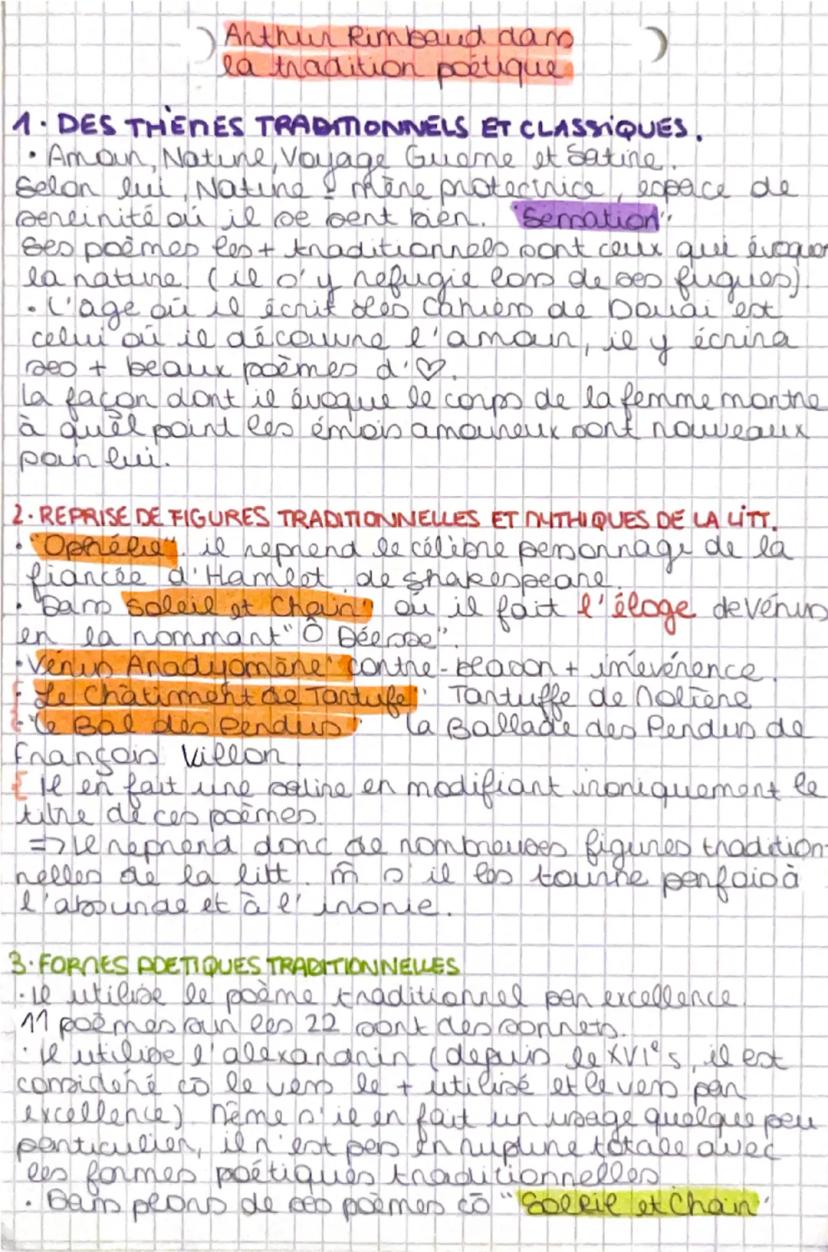 Arthur Rimbaud dans
la tradition poétique
1. DES THÈMES TRADITIONNELS ET CLASSIQUES.
• Amour, Nature, Voyage Guerre et Satire.
Selon lui, Nature = mère protectrice, espace de
sereinité où il se sent bien. "Sensation".
Ses poèmes les + traditionnels sont ceux qui évoquent
la nature. (il s'y refugie lors de ses fugues)
• L'age où il écrit les Cahiers de Douai est
celui où il découvre l'amour, il y écrira
ses + beaux poèmes d'♡.
La façon dont il évoque le corps de la femme montre
à quel point les émois amoureux sont nouveaux
pour lui.
2. REPRISE DE FIGURES TRADITIONNELLES ET MYTHIQUES DE LA LITT.
• "Ophélie". il reprend le célèbre personnage de la
fiancée d'Hamlet, de Shakespeare.
• Dans "Soleil et Chair" où il fait l'éloge de Vénus
en la nommant "Ô Déesse".
• "Vénus Anadyomène" contre-blason + irrévérence.
• "Le Châtiment de Tartufe" Tartuffe de Molière
• "Le Bal des Pendus" La Ballade des Pendus de
François Villon.
{ Il en fait une satire en modifiant ironiquement le
titre de ces poèmes.
=> Il reprend donc de nombreuses figures tradition-
nelles de la litt. m̂ s'il les tourne parfois à
l'absurde et à l'ironie.
3. FORMES POETIQUES TRADITIONNELLES
• Il utilise le poème traditionnel par excellence.
11 poèmes sur les 22 sont des sonnets.
• Il utilise l'alexandrin (depuis le XVIe s, il est
considéré cō le vers le + utilisé et le vers par
excellence) Même s'il en fait un usage quelque peu
particulier, il n'est pas en rupture totale avec
les formes poétiques traditionnelles
• Dans plsrs de ses poèmes cō "Soleil et Chair"